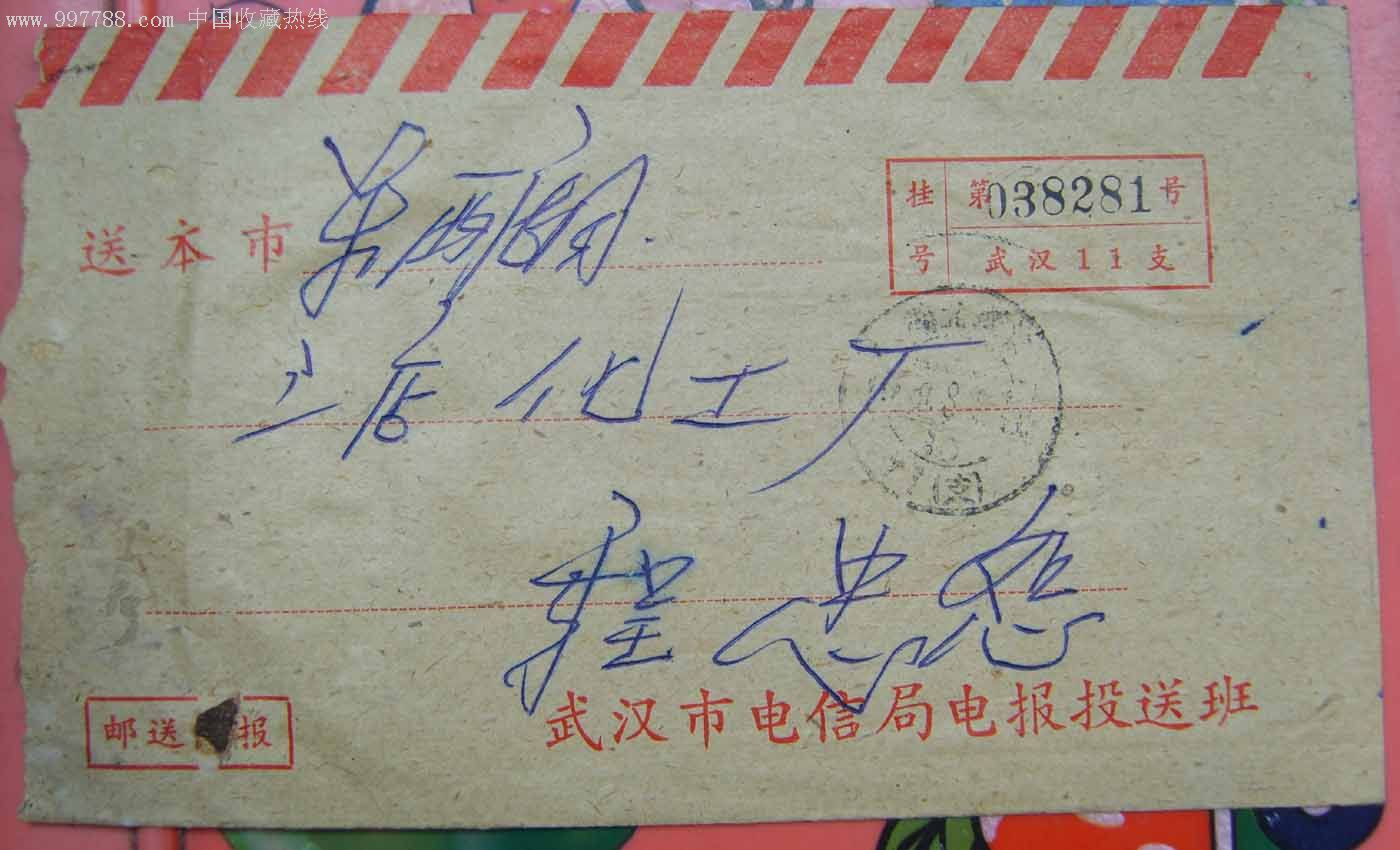 www.997788.com 中国收藏热线
挂号 第038281号
武汉11支
送本市
店化工厂
程忠
邮送 报
武汉市电信局电报投送班